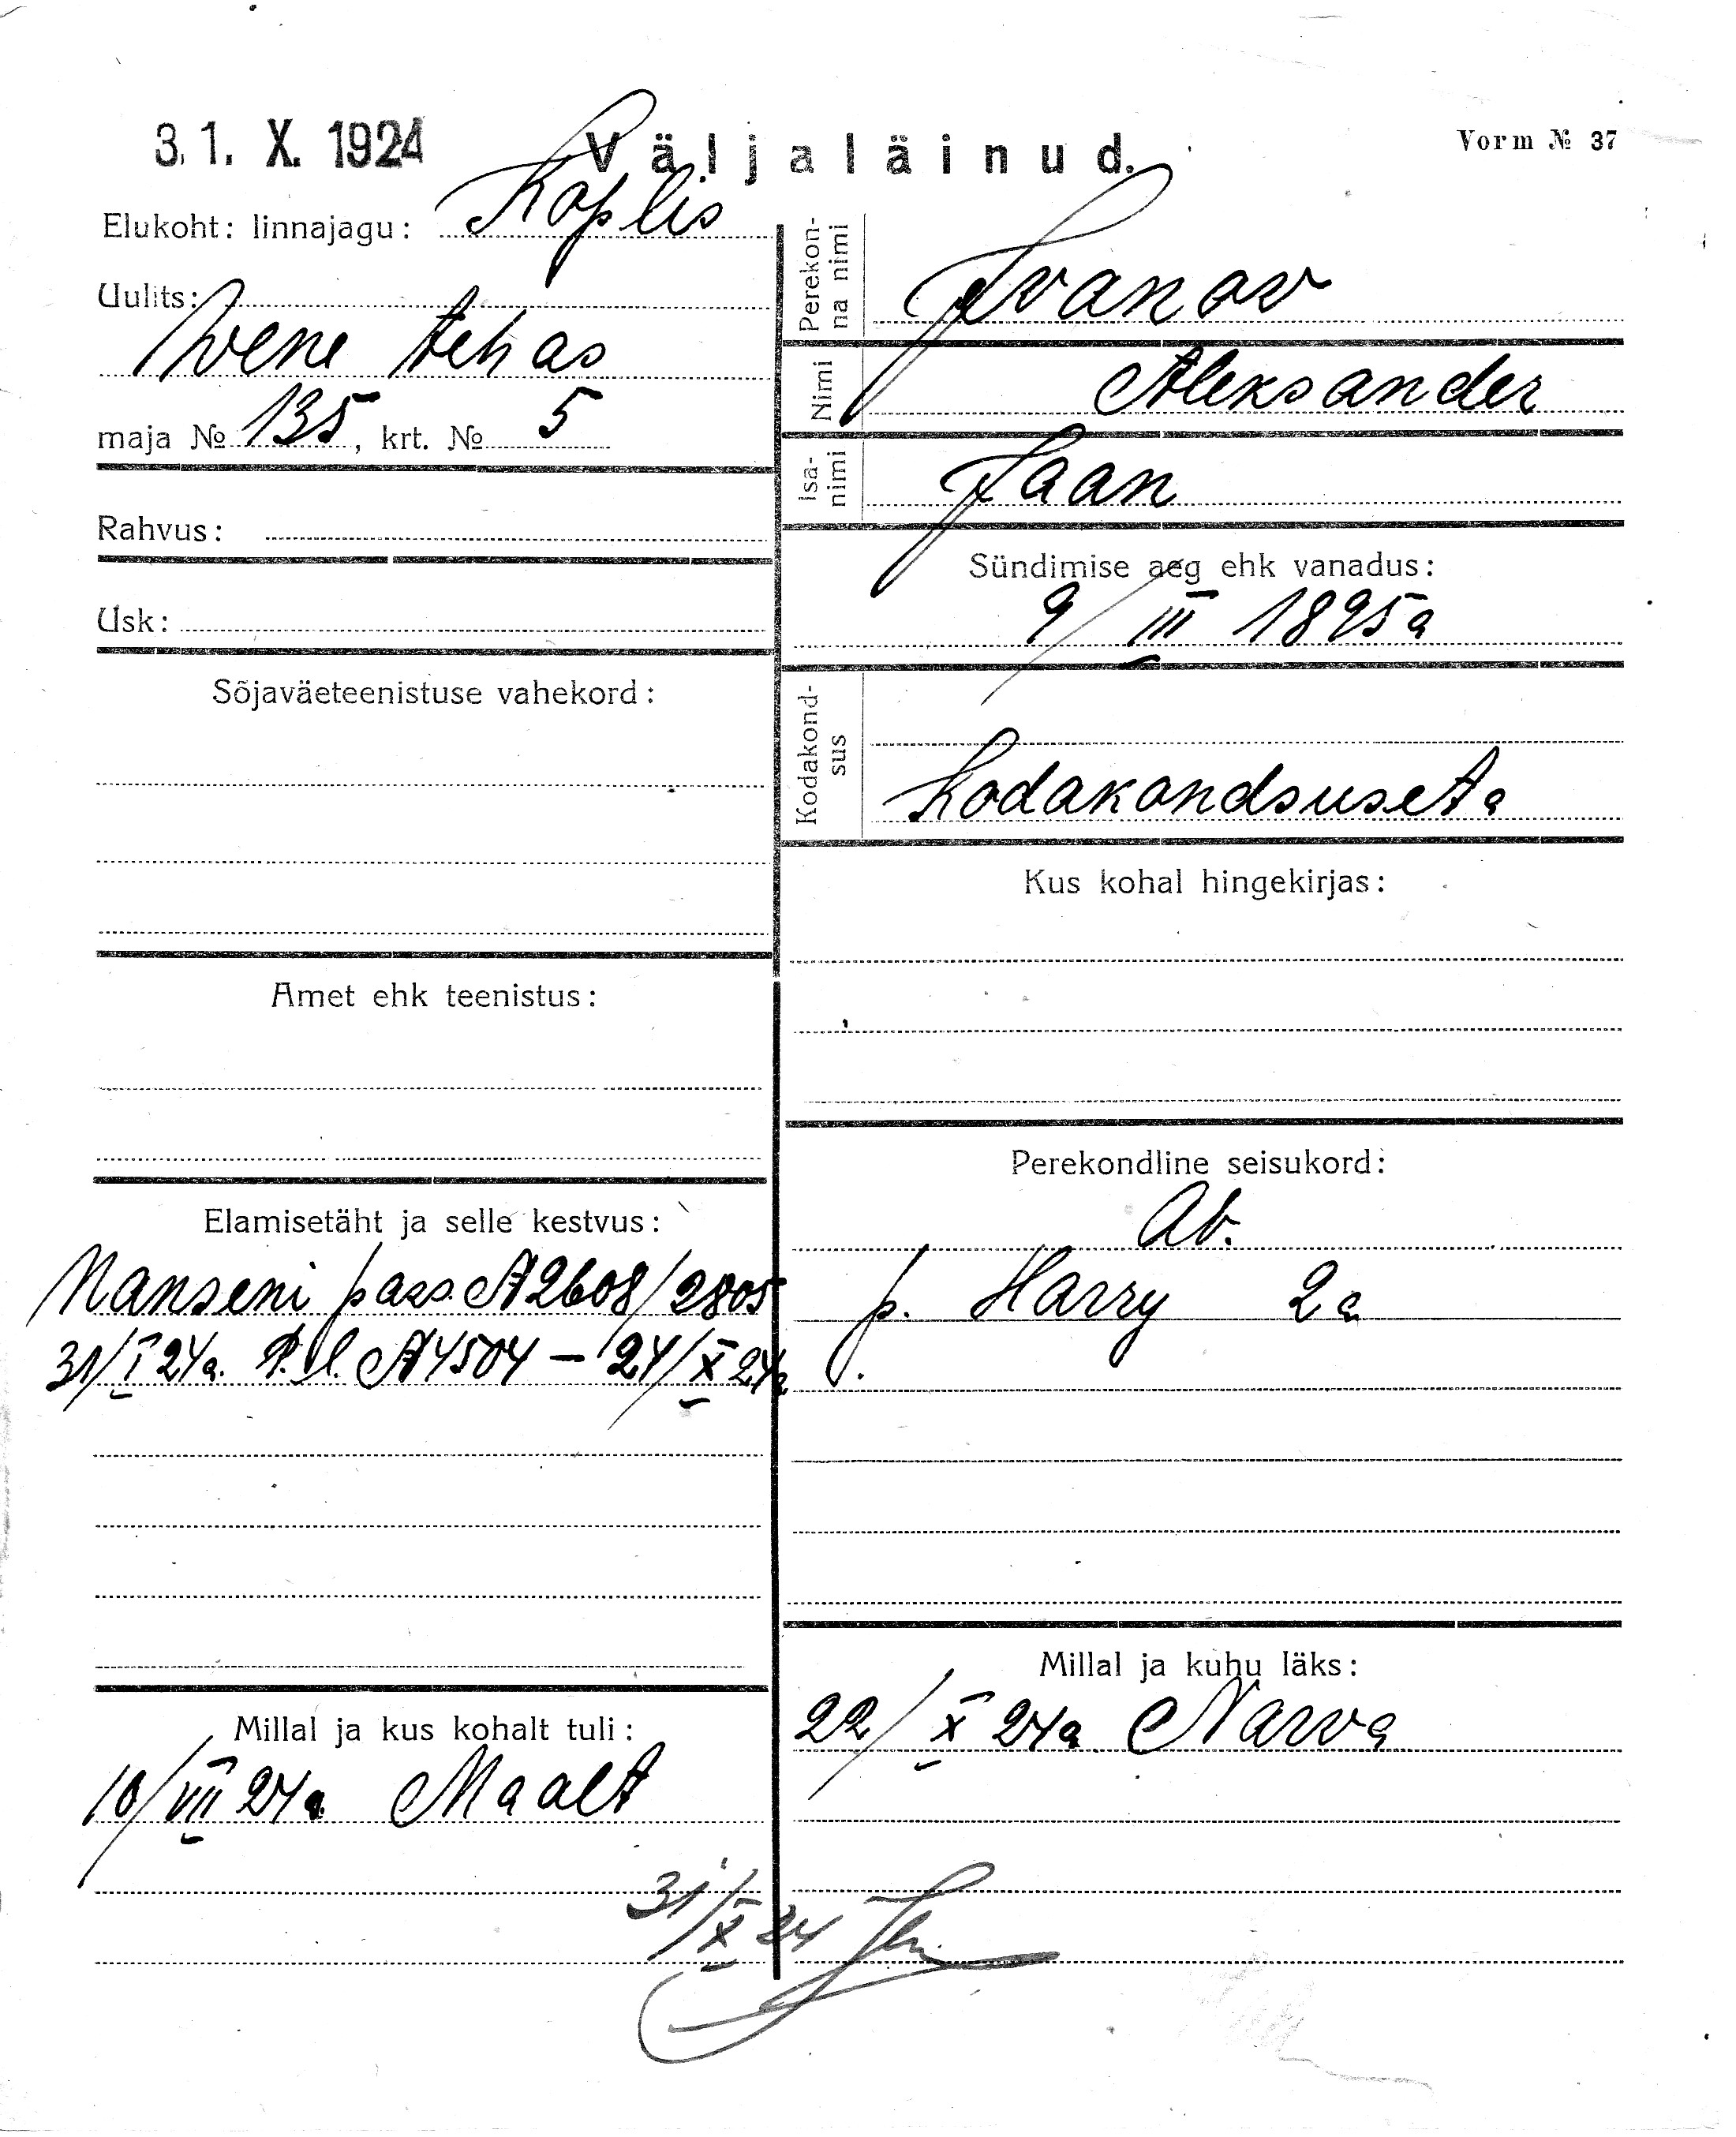 31. X. 1924
Väljaläinud.
Vorm № 37
Elukoht: linnajagu: Koplis
Uulits:
Wene tehas
maja № 135, krt. № 5
Rahvus:
Usk:
Sõjaväeteenistuse vahekord:
Amet ehk teenistus:
Elamisetäht ja selle kestvus:
Nanseni pass. A 2608/2805
31/I 24a. A 4504 – 24/X 24a
Millal ja kus kohalt tuli:
10/VIII 24a Maalt
Perekon-
na nimi
Ivanov
Nimi
Aleksander
Isa-
nimi
Jaan
Sündimise aeg ehk vanadus:
9/III 1895a
Kodakond-
sus
Kodakondsuseta
Kus kohal hingekirjas:
Perekondline seisukord:
Ab.
p. Harry 2a
Millal ja kuhu läks:
22/X 24a Narva
31/X 24